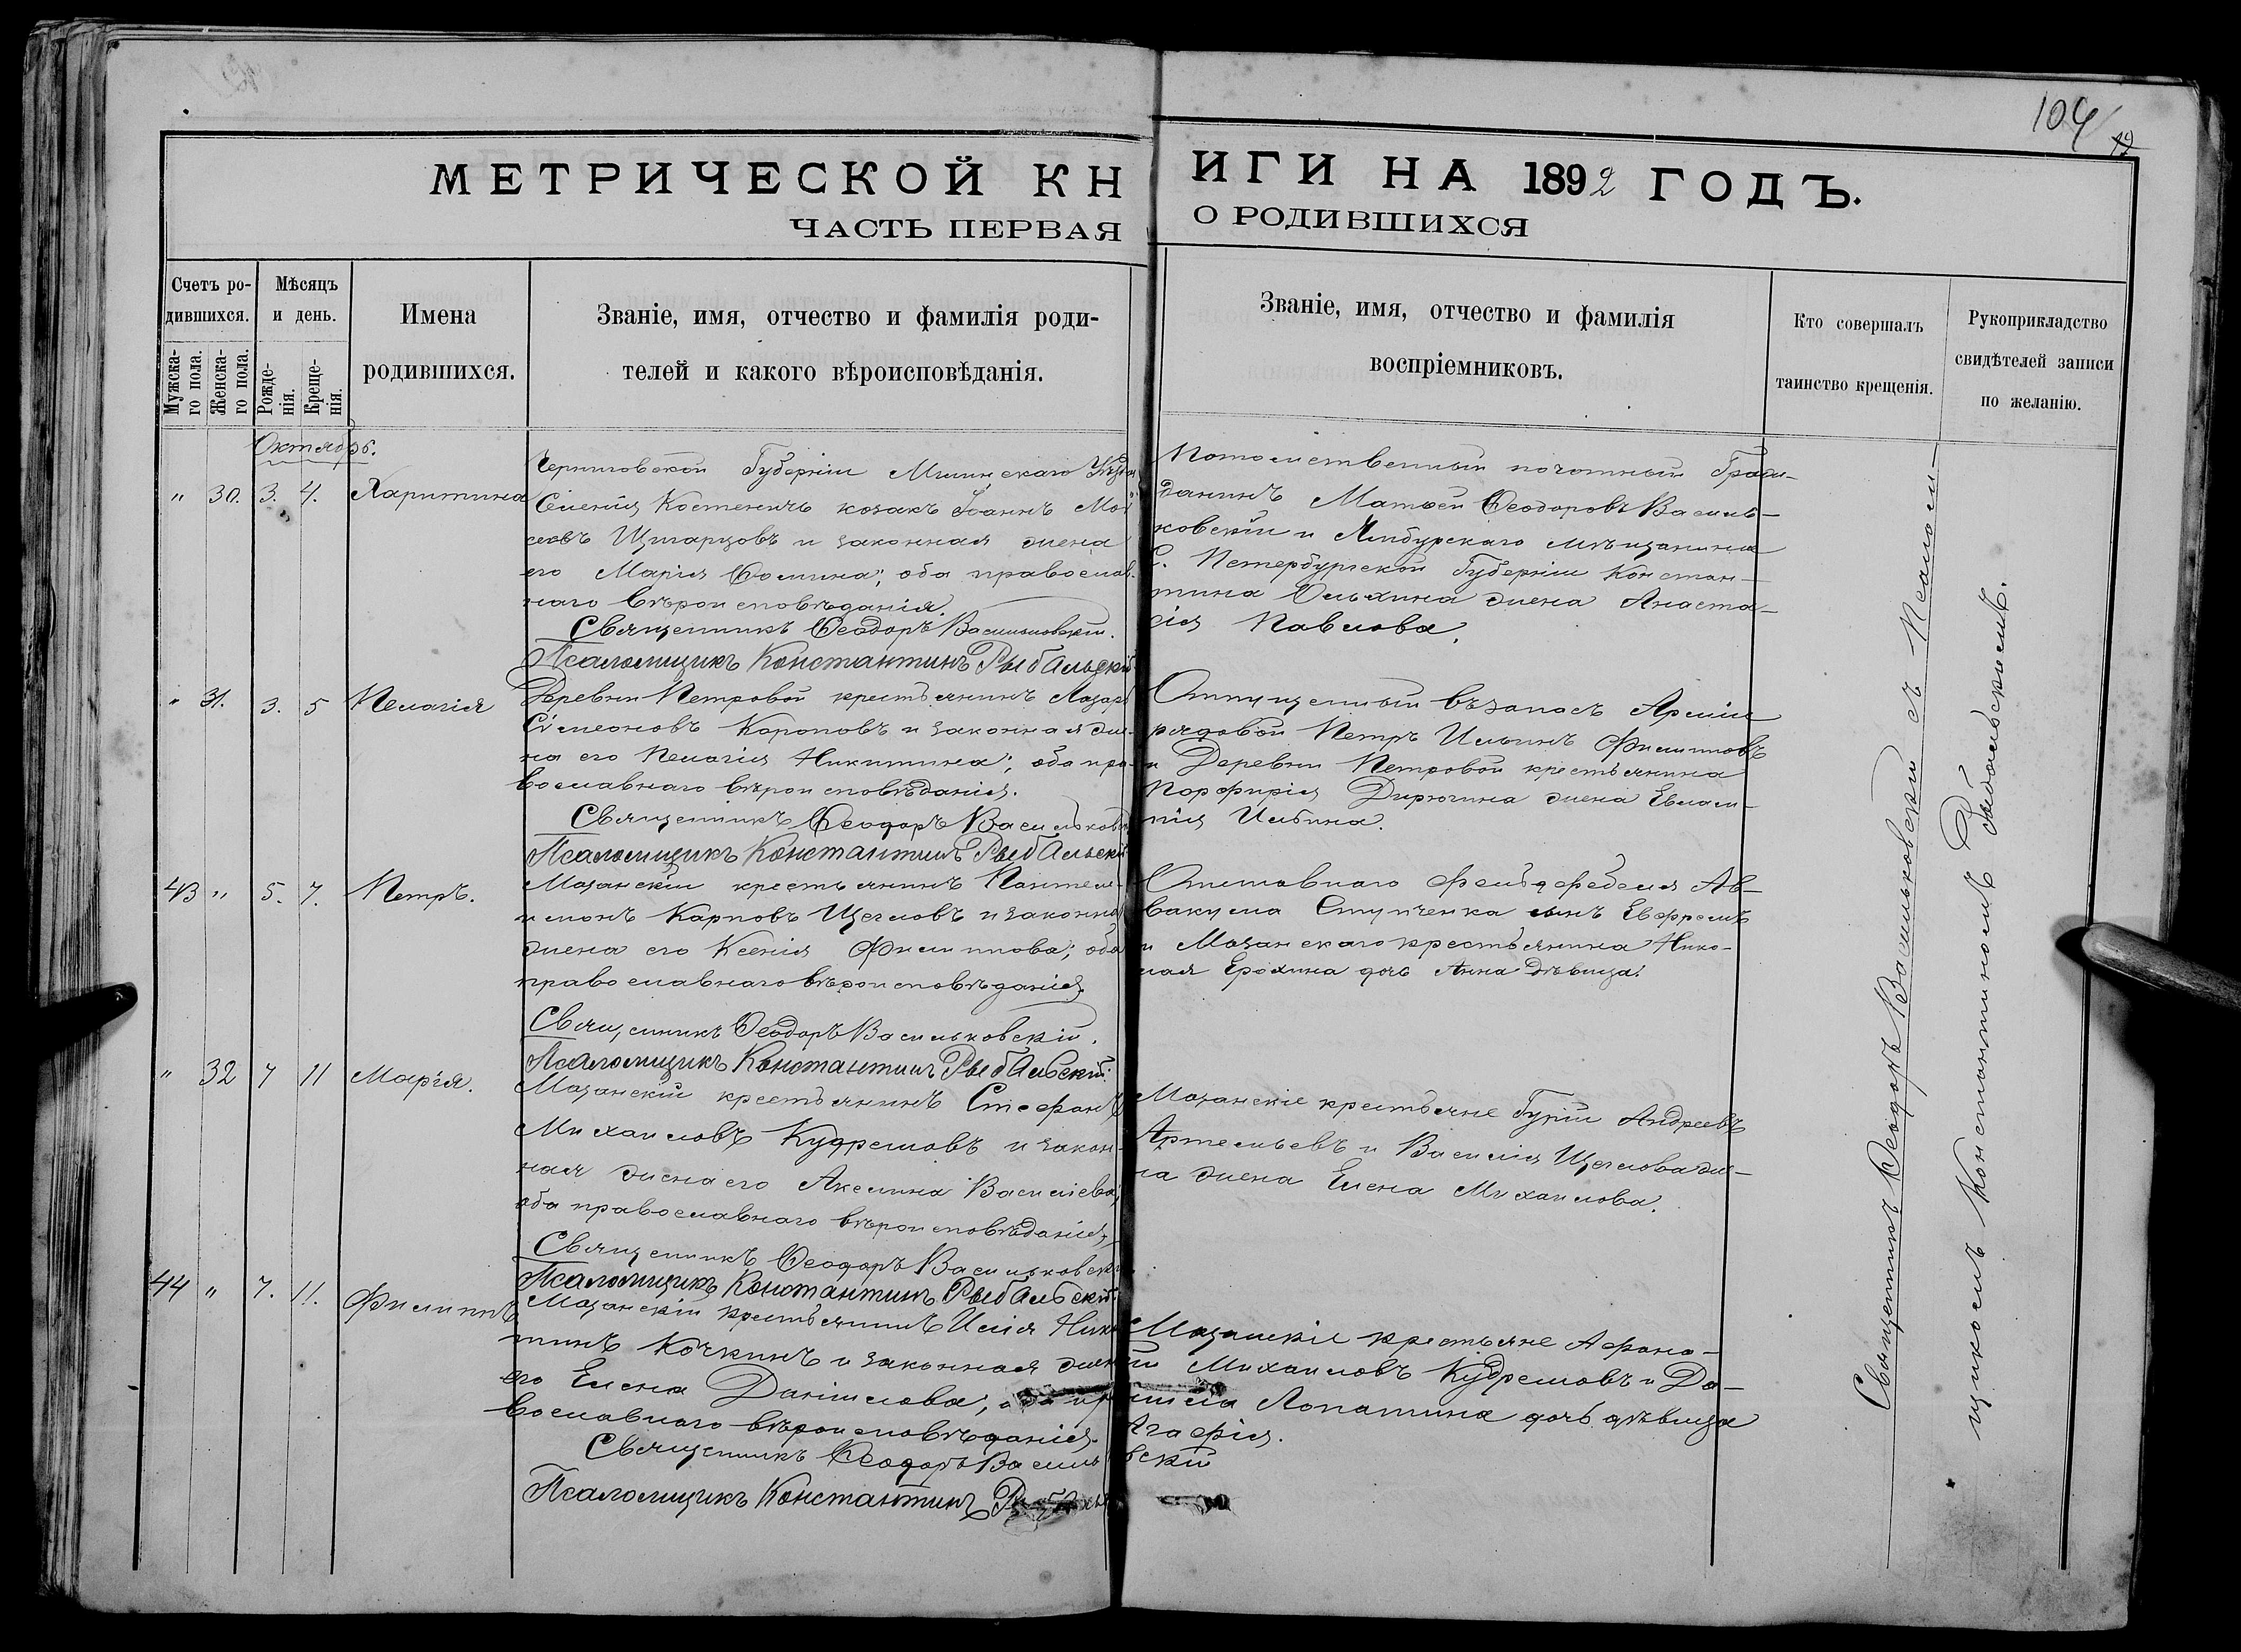 104
12
МЕТРИЧЕСКОЙ КНИГИ НА 1892 ГОДЪ.
ЧАСТЬ ПЕРВАЯ О РОДИВШИХСЯ
Счетъ ро-
дившихся.
Мужска-
го пола.
Женска-
го пола.
Мѣсяцъ
и день.
Рожде-
нія.
Креще-
нія.
Имена
родившихся.
Званіе, имя, отчество и фамилія роди-
телей и какого вѣроисповѣданія.
Званіе, имя, отчество и фамилія
воспріемниковъ.
Кто совершалъ
таинство крещенія.
Рукоприкладство
свидѣтелей записи
по желанію.
Октябрь.
" 30. 3. 4. Харитина
Черниговской Губерніи Мглинскаго Уѣзда
Селенія Костеничь козакъ Іоаннъ Мої
сеевъ и законная жена
его Марія Фомина; оба православ-
наго вѣроисповѣданія.
Священникъ Ѳеодоръ Васильковскій.
Псаломщикъ Константинъ Рыбальскій
Потомственный почотный Граж-
данинъ Матѳей Ѳеодоровъ Василь-
ковскій и Ямбурскаго мѣщанина
С. Петербургской Губерніи Констан-
тина жена Анаста-
сія Павлова.
" 31. 3. 5 Пелагія
Деревни Петровой крестьянинъ Лазарь
Сімеоновъ Кароповъ и законная же-
на его Пелагія Никитина; оба пра-
вославнаго вѣроисповѣданія.
Священникъ Ѳеодоръ Васильковск
Псаломщикъ Константинъ Рыбальскій
Отпущенный въ запасъ Арміи
рядовой Петръ Ильинъ Филипповъ
и Деревни Петровой крестьянина
Порфирія Дирюгина жена Евлам-
пія Ильина.
43 " 5. 7. Петръ.
Мазанскій крестьянинъ Пантеле-
имонъ Карповъ Щегловъ и законная
жена его Ксенія Филиппова; оба
православнаго вѣроисповѣданія.
Священникъ Ѳеодоръ Васильковскій.
Псаломщикъ Константинъ Рыбальскій.
Отставнаго фельдфебеля Ав-
вакума Ступченка сынъ Евфремъ
и Мазанскаго крестьянина Нико-
лая Ерохина дочь Анна дѣвица.
" 32 7 11 Марія.
Мазанскій крестьянинъ Стефанъ
Михаиловъ Кудрешовъ и закон-
ная жена его Акелина Василіева;
оба православнаго вѣроисповѣданія,
Священникъ Ѳеодоръ Васильковскі
Псаломщикъ Константинъ Рыбальскій.
Мазанскіе крестьяне Гурій Андреевъ
Артемьевъ и Василія Щеглова же-
на жена Елена Михаилова.
44 " 7. 11. Филиппъ
Мазанскій крестьянинъ Илія Ники
тинъ Кочкинъ и законная жена
его Елена Даніилова; оба пра
вославнаго вѣроисповѣданія.
Священникъ Ѳеодоръ Васильковскій
Псаломщикъ Константинъ Рыбальск
Мазанскіе крестьяне Афана-
сій Михаиловъ Кудрешовъ и Да-
ніила Лопатина дочь дѣвица
Агафія.
Священникъ Ѳеодоръ Васильковскій съ Псалом-
щикомъ Константиномъ Рыбальскимъ.